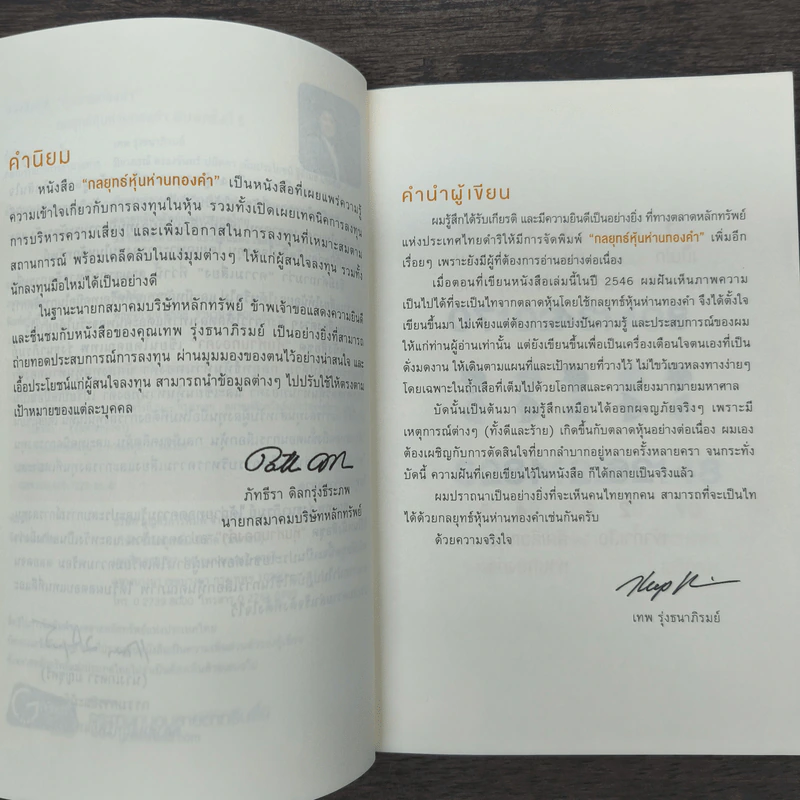 คำนิยม
หนังสือ "กลยุทธ์หุ้นห่านทองคำ" เป็นหนังสือที่เผยแพร่ความรู้
ความเข้าใจเกี่ยวกับการลงทุนในหุ้น รวมทั้งเปิดเผยเทคนิคการลงทุน
การบริหารความเสี่ยง และเพิ่มโอกาสในการลงทุนที่เหมาะสมตาม
สถานการณ์ พร้อมเคล็ดลับในแง่มุมต่างๆ ให้แก่ผู้สนใจลงทุน รวมทั้ง
นักลงทุนมือใหม่ได้เป็นอย่างดี
ในฐานะนายกสมาคมบริษัทหลักทรัพย์ ข้าพเจ้าขอแสดงความยินดี
และชื่นชมกับหนังสือของคุณเทพ รุ่งธนาภิรมย์ เป็นอย่างยิ่งที่สามารถ
ถ่ายทอดประสบการณ์การลงทุน ผ่านมุมมองของตนไว้อย่างน่าสนใจ และ
เอื้อประโยชน์แก่ผู้สนใจลงทุน สามารถนำข้อมูลต่างๆ ไปปรับใช้ให้ตรงตาม
เป้าหมายของแต่ละบุคคล
ภัทธีรา ดิลกรุ่งธีระภพ
นายกสมาคมบริษัทหลักทรัพย์
คำนำผู้เขียน
ผมรู้สึกได้รับเกียรติ และมีความยินดีเป็นอย่างยิ่ง ที่ทางตลาดหลักทรัพย์
แห่งประเทศไทยดำริให้มีการจัดพิมพ์ "กลยุทธ์หุ้นห่านทองคำ" เพิ่มอีก
เรื่อยๆ เพราะยังมีผู้ที่ต้องการอ่านอย่างต่อเนื่อง
เมื่อตอนที่เขียนหนังสือเล่มนี้ในปี 2546 ผมฝันเห็นภาพความ
เป็นไปได้ที่จะเป็นไทจากตลาดหุ้นโดยใช้กลยุทธ์หุ้นห่านทองคำ จึงได้ตั้งใจ
เขียนขึ้นมา ไม่เพียงแต่ต้องการจะแบ่งปันความรู้ และประสบการณ์ของผม
ให้แก่ท่านผู้อ่านเท่านั้น แต่ยังเขียนขึ้นเพื่อเป็นเครื่องเตือนใจตนเองที่เป็น
ดั่งมดงาน ให้เดินตามแผนที่และเป้าหมายที่วางไว้ ไม่ไขว้เขวหลงทางง่ายๆ
โดยเฉพาะในถ้ำเสือที่เต็มไปด้วยโอกาสและความเสี่ยงมากมายมหาศาล
บัดนั้นเป็นต้นมา ผมรู้สึกเหมือนได้ออกผจญภัยจริงๆ เพราะมี
เหตุการณ์ต่างๆ (ทั้งดีและร้าย) เกิดขึ้นกับตลาดหุ้นอย่างต่อเนื่อง ผมเอง
ต้องเผชิญกับการตัดสินใจที่ยากลำบากอยู่หลายครั้งหลายครา จนกระทั่ง
บัดนี้ ความฝันที่เคยเขียนไว้ในหนังสือ ก็ได้กลายเป็นจริงแล้ว
ผมปรารถนาเป็นอย่างยิ่งที่จะเห็นคนไทยทุกคน สามารถที่จะเป็นไท
ได้ด้วยกลยุทธ์หุ้นห่านทองคำเช่นกันครับ
ด้วยความจริงใจ
เทพ รุ่งธนาภิรมย์